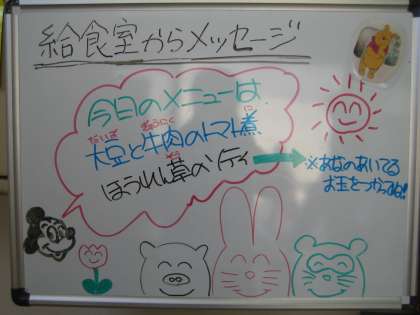 給食室からメッセージ
今日のメニューは
だいず ぎゅうにく に
大豆と牛肉のトマト煮
そう
ほうれん草のソティ
※あなのあいてる
お玉をつかってね!